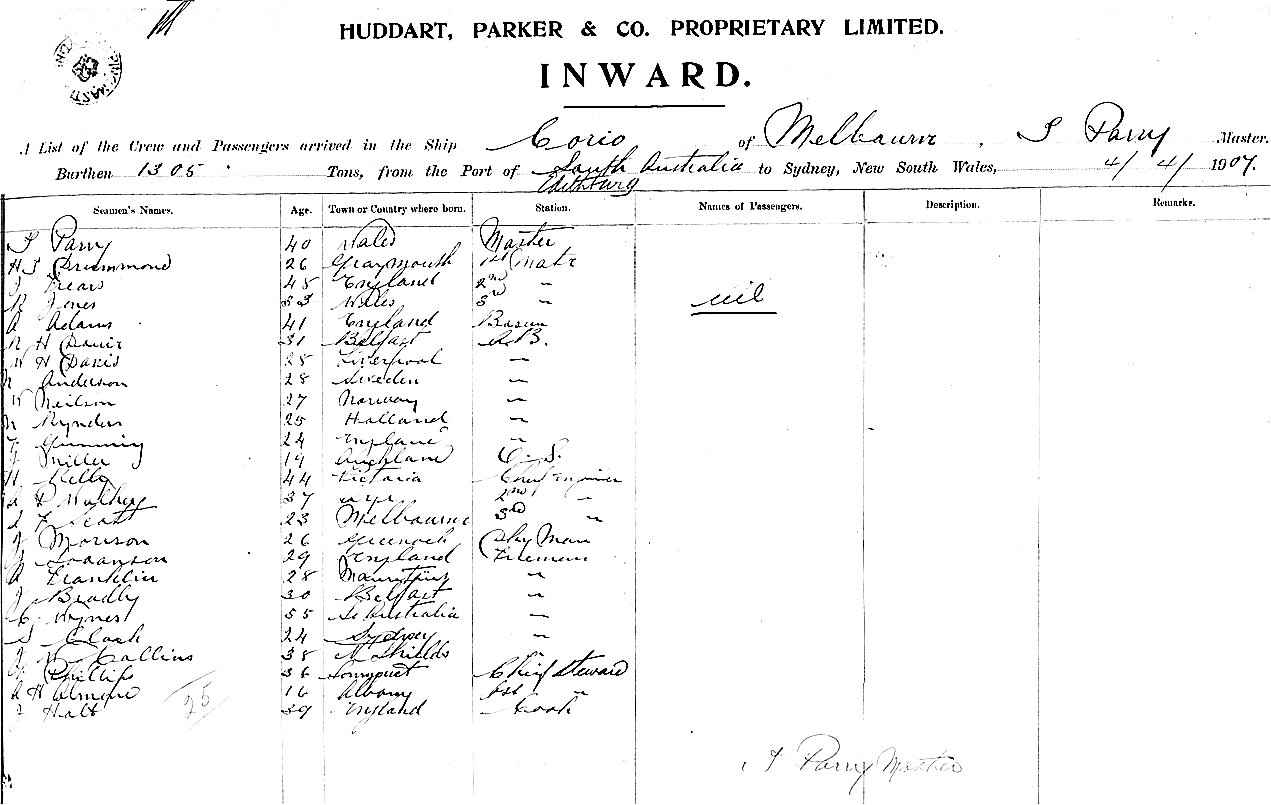 HUDDART, PARKER & CO. PROPRIETARY LIMITED.
INWARD.
A List of the Crew and Passengers arrived in the Ship Corio of Melbourne, Parry Master.
Burthen 1305 Tons, from the Port of South Australia to Sydney, New South Wales, 4/4/1907.
Edithburg
Seamen's Names. Age. Town or Country where born. Station. Names of Passengers. Description. Remarks.
Parry 40 Wales Master
Drummond 26 Graymouth 1st Mate
Frears 45 England 2nd "
Jones 33 Wales 3rd "
nil
A Adams 41 England Bosun
H Davis 31 Belfast A.B.
W H Davis 28 Liverpool "
Anderson 28 Sweden "
W Neilson 27 Norway "
Rynders 25 Holland "
24 England "
Miller 19 Auckland O.S.
H Kelly 44 Victoria Chief Engineer
37 Ayr 2nd "
F Scott 23 Melbourne 3rd "
J Morison 26 Greenock Dky Man
Johanson 29 England Fireman
A Franklin 28 Mauritius "
J Bradly 30 Belfast "
C Wynes 55 So Australia "
S Clark 24 Sydney "
J W Collins 38 N Shields "
Phillips 36 Chief Steward
A H 16 Albany Asst "
J Halt 39 England Cook
25
Parry Master